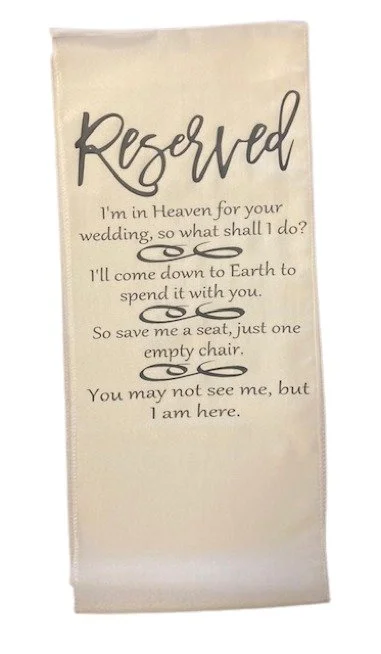 Reserved
I'm in Heaven for your
wedding, so what shall I do?
I'll come down to Earth to
spend it with you.
So save me a seat, just one
empty chair.
You may not see me, but
I am here.